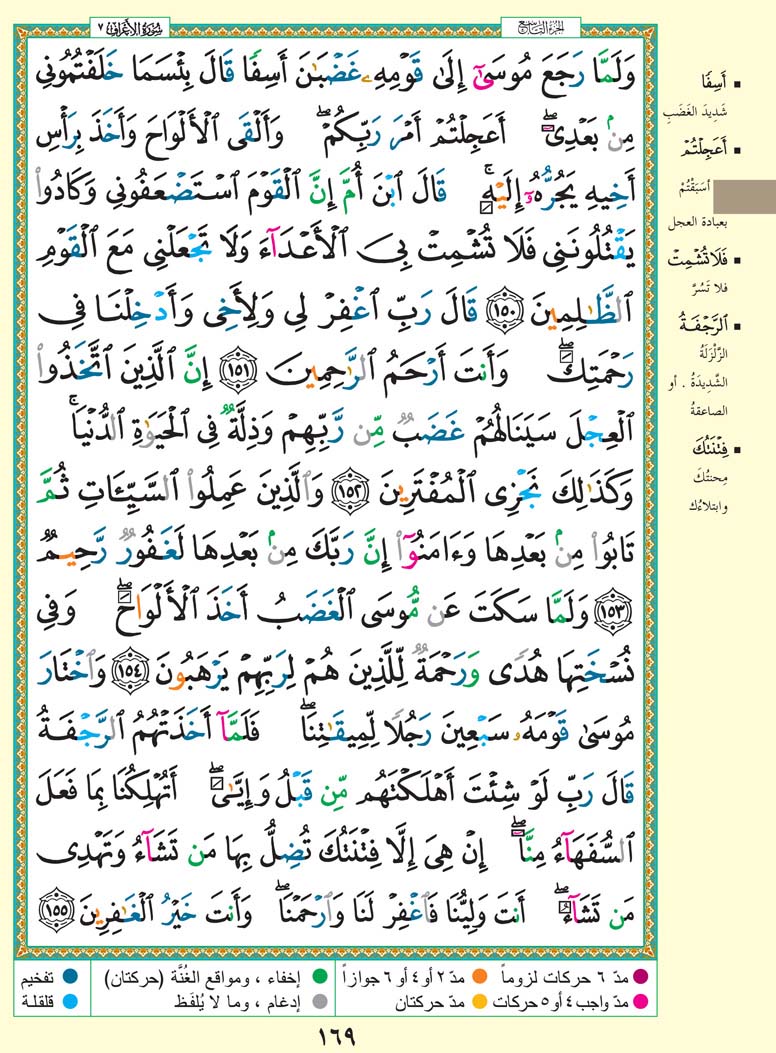 الجزء التاسع
سورة الأعراف ٧
وَلَمَّا رَجَعَ مُوسَىٰٓ إِلَىٰ قَوْمِهِۦ غَضْبَٰنَ أَسِفًا قَالَ بِئْسَمَا خَلَفْتُمُونِى
مِنۢ بَعْدِىٓۖ أَعَجِلْتُمْ أَمْرَ رَبِّكُمْۖ وَأَلْقَى ٱلْأَلْوَاحَ وَأَخَذَ بِرَأْسِ
أَخِيهِ يَجُرُّهُۥٓ إِلَيْهِۚ قَالَ ٱبْنَ أُمَّ إِنَّ ٱلْقَوْمَ ٱسْتَضْعَفُونِى وَكَادُوا۟
يَقْتُلُونَنِى فَلَا تُشْمِتْ بِىَ ٱلْأَعْدَآءَ وَلَا تَجْعَلْنِى مَعَ ٱلْقَوْمِ
ٱلظَّٰلِمِينَ ١٥٠ قَالَ رَبِّ ٱغْفِرْ لِى وَلِأَخِى وَأَدْخِلْنَا فِى
رَحْمَتِكَۖ وَأَنتَ أَرْحَمُ ٱلرَّٰحِمِينَ ١٥١ إِنَّ ٱلَّذِينَ ٱتَّخَذُوا۟
ٱلْعِجْلَ سَيَنَالُهُمْ غَضَبٌ مِّن رَّبِّهِمْ وَذِلَّةٌ فِى ٱلْحَيَوٰةِ ٱلدُّنْيَاۚ
وَكَذَٰلِكَ نَجْزِى ٱلْمُفْتَرِينَ ١٥٢ وَٱلَّذِينَ عَمِلُوا۟ ٱلسَّيِّـَٔاتِ ثُمَّ
تَابُوا۟ مِنۢ بَعْدِهَا وَءَامَنُوٓا۟ إِنَّ رَبَّكَ مِنۢ بَعْدِهَا لَغَفُورٌ رَّحِيمٌ
١٥٣ وَلَمَّا سَكَتَ عَن مُّوسَى ٱلْغَضَبُ أَخَذَ ٱلْأَلْوَاحَۖ وَفِى
نُسْخَتِهَا هُدًى وَرَحْمَةٌ لِّلَّذِينَ هُمْ لِرَبِّهِمْ يَرْهَبُونَ ١٥٤ وَٱخْتَارَ
مُوسَىٰ قَوْمَهُۥ سَبْعِينَ رَجُلًا لِّمِيقَٰتِنَاۖ فَلَمَّآ أَخَذَتْهُمُ ٱلرَّجْفَةُ
قَالَ رَبِّ لَوْ شِئْتَ أَهْلَكْتَهُم مِّن قَبْلُ وَإِيَّٰىَۖ أَتُهْلِكُنَا بِمَا فَعَلَ
ٱلسُّفَهَآءُ مِنَّآۖ إِنْ هِىَ إِلَّا فِتْنَتُكَ تُضِلُّ بِهَا مَن تَشَآءُ وَتَهْدِى
مَن تَشَآءُۖ أَنتَ وَلِيُّنَا فَٱغْفِرْ لَنَا وَٱرْحَمْنَاۖ وَأَنتَ خَيْرُ ٱلْغَٰفِرِينَ ١٥٥
▪ أَسِفًا
شَدِيدَ الغَضَبِ
▪ أَعَجِلْتُمْ
أسَبَقْتُمْ
بعبادة العجل
▪ فَلَا تُشْمِتْ
فلا تَسُرَّ
▪ ٱلرَّجْفَةُ
الزَّلْزَلَةُ
الشَّدِيدَةُ . أو
الصاعقةُ
▪ فِتْنَتُكَ
مِحنتُكَ
وابتلاءُك
مدّ ٦ حركات لزوماً
مدّ ٢ أو ٤ أو ٦ جوازاً
إخفاء ، ومواقع الغُنَّة (حركتان)
تفخيم
مدّ واجب ٤ أو ٥ حركات
مدّ حركتان
إدغام ، وما لا يُلفَظ
قلقلة
١٦٩